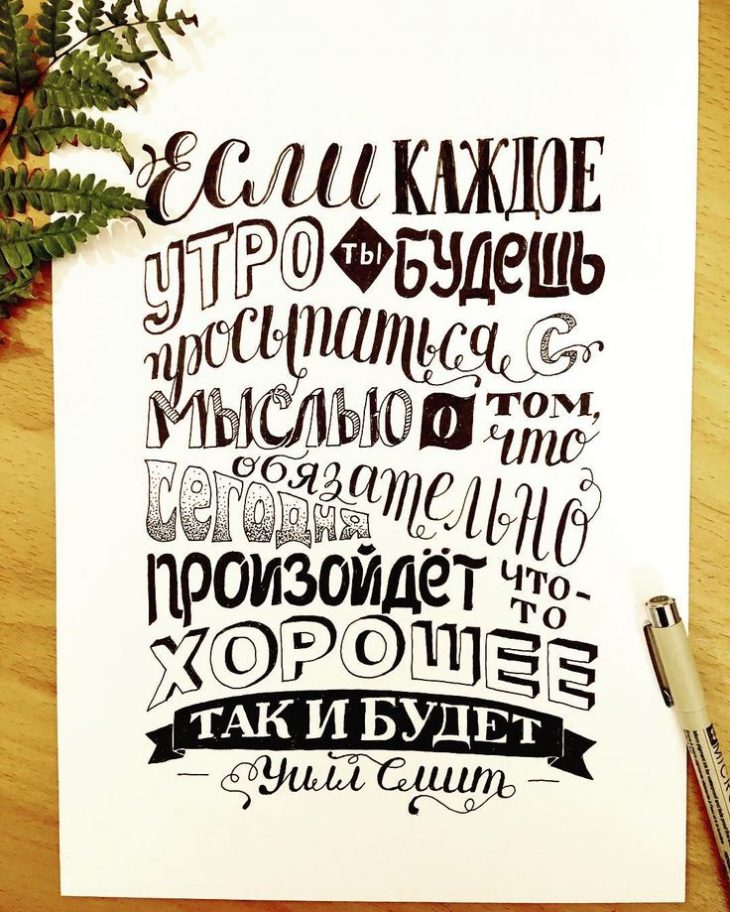 Если КАЖДОЕ
УТРО ТЫ БУДЕШЬ
просыпаться С
МЫСЛЬЮ О ТОМ,
что
сегодня обязательно
ПРОИЗОЙДЁТ ЧТО-
ТО
ХОРОШЕЕ
ТАК И БУДЕТ
— Уилл Смит —
MICR